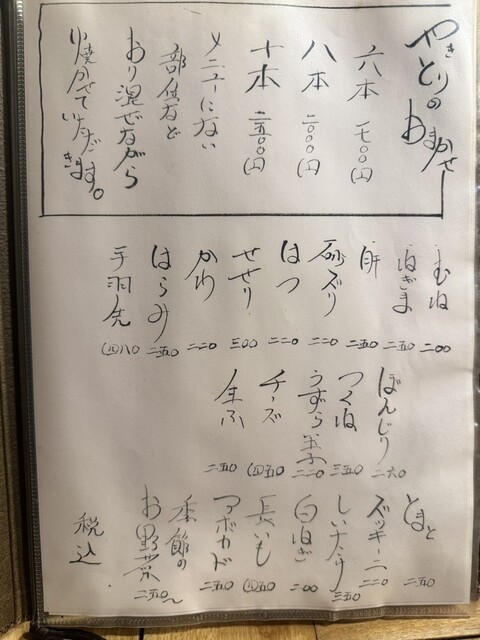 やきとりのおまかせ
六本 一七〇〇円
八本 二〇〇〇円
十本 二五〇〇円
メニューにない
部位など
おり混ぜながら
焼かせていただきます。
むね 二〇〇
ねぎま 二五〇
肝 二五〇
砂ズリ 二二〇
はつ 二二〇
せせり 三〇〇
かわ 二二〇
はらみ 二五〇
手羽先
ぼんじり 二六〇
つくね 三五〇
うずら玉子 二二〇
チーズ
生ふ 二五〇
とまと 二五〇
ズッキーニ 二二〇
しいたけ 三五〇
白ねぎ 二〇〇
長いも
アボカド 二五〇
季節の
お野菜 二五〇〜
税込